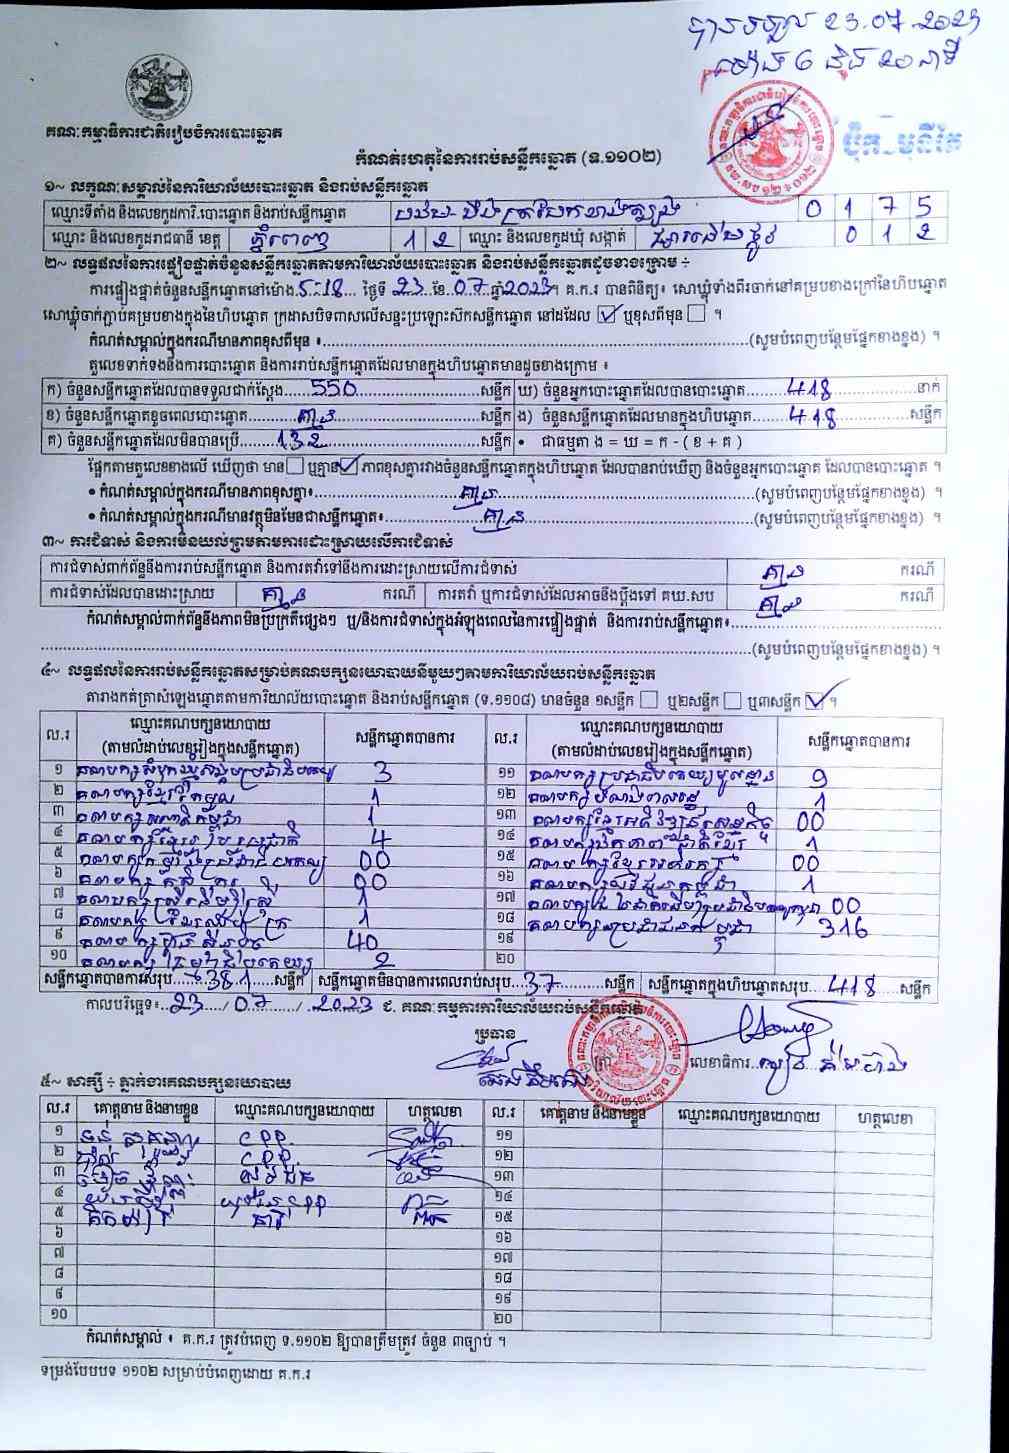 បានទទួល 23.07.2023
ម៉ោង 6 និង 20 នាទី
គណៈកម្មាធិការជាតិរៀបចំការបោះឆ្នោត
កំណត់ហេតុនៃការរាប់សន្លឹកឆ្នោត (ទ.១១០២)
១~ លក្ខណៈសម្គាល់នៃការិយាល័យបោះឆ្នោត និងរាប់សន្លឹកឆ្នោត
ឈ្មោះទីតាំង និងលេខកូដការិ.បោះឆ្នោត និងរាប់សន្លឹកឆ្នោត 0 1 7 5
ឈ្មោះ និងលេខកូដរាជធានី ខេត្ត ភ្នំពេញ 1 2 ឈ្មោះ និងលេខកូដឃុំ សង្កាត់ 0 1 2
២~ លទ្ធផលនៃការផ្ទៀងផ្ទាត់ចំនួនសន្លឹកឆ្នោតតាមការិយាល័យបោះឆ្នោត និងរាប់សន្លឹកឆ្នោតដូចខាងក្រោម ÷
ការផ្ទៀងផ្ទាត់ចំនួនសន្លឹកឆ្នោតនៅម៉ោង 5:18 ថ្ងៃទី 23 ខែ 07 ឆ្នាំ 2023។ គ.ក.រ បានពិនិត្យ៖ សោឃ្លុំទាំងពីរចាក់នៅគម្របខាងក្រៅនៃហិបឆ្នោត
សោឃ្លុំចាក់ភ្ជាប់គម្របខាងក្នុងនៃហិបឆ្នោត ក្រដាសបិទពាសលើសន្ទះប្រឡោះសឹកសន្លឹកឆ្នោត នៅដដែល ☑ ឬខុសពីមុន ☐ ។
កំណត់សម្គាល់ក្នុងករណីមានភាពខុសពីមុន ៖ (សូមបំពេញបន្ថែមផ្នែកខាងខ្នង) ។
តួលេខទាក់ទងនឹងការបោះឆ្នោត និងការរាប់សន្លឹកឆ្នោតដែលមានក្នុងហិបឆ្នោតមានដូចខាងក្រោម ៖
ក) ចំនួនសន្លឹកឆ្នោតដែលបានទទួលជាក់ស្តែង 550 សន្លឹក ឃ) ចំនួនអ្នកបោះឆ្នោតដែលបានបោះឆ្នោត 418 នាក់
ខ) ចំនួនសន្លឹកឆ្នោតខូចពេលបោះឆ្នោត គ្មាន សន្លឹក ង) ចំនួនសន្លឹកឆ្នោតដែលមានក្នុងហិបឆ្នោត 418 សន្លឹក
គ) ចំនួនសន្លឹកឆ្នោតដែលមិនបានប្រើ 132 សន្លឹក • ជាធម្មតា ង = ឃ = ក - ( ខ + គ )
ផ្អែកតាមតួលេខខាងលើ ឃើញថា មាន ☐ ឬគ្មាន ☑ ភាពខុសគ្នារវាងចំនួនសន្លឹកឆ្នោតក្នុងហិបឆ្នោត ដែលបានរាប់ឃើញ និងចំនួនអ្នកបោះឆ្នោត ដែលបានបោះឆ្នោត ។
• កំណត់សម្គាល់ក្នុងករណីមានភាពខុសគ្នា៖ គ្មាន (សូមបំពេញបន្ថែមផ្នែកខាងខ្នង) ។
• កំណត់សម្គាល់ក្នុងករណីមានវត្ថុមិនមែនជាសន្លឹកឆ្នោត៖ គ្មាន (សូមបំពេញបន្ថែមផ្នែកខាងខ្នង) ។
៣~ ការជំទាស់ និងការមិនយល់ព្រមតាមការដោះស្រាយលើការជំទាស់
ការជំទាស់ពាក់ព័ន្ធនឹងការរាប់សន្លឹកឆ្នោត និងការតវ៉ាទៅនឹងការដោះស្រាយលើការជំទាស់ គ្មាន ករណី
ការជំទាស់ដែលបានដោះស្រាយ គ្មាន ករណី ការតវ៉ា ឬការជំទាស់ដែលអាចនឹងប្តឹងទៅ គឃ.សប គ្មាន ករណី
កំណត់សម្គាល់ពាក់ព័ន្ធនឹងភាពមិនប្រក្រតីផ្សេងៗ ឬ/និងការជំទាស់ក្នុងអំឡុងពេលនៃការផ្ទៀងផ្ទាត់ និងការរាប់សន្លឹកឆ្នោត៖
(សូមបំពេញបន្ថែមផ្នែកខាងខ្នង) ។
៤~ លទ្ធផលនៃការរាប់សន្លឹកឆ្នោតសម្រាប់គណបក្សនយោបាយនីមួយៗតាមការិយាល័យរាប់សន្លឹកឆ្នោត
តារាងកត់ត្រាសំឡេងឆ្នោតតាមការិយាល័យបោះឆ្នោត និងរាប់សន្លឹកឆ្នោត (ទ.១១០៨) មានចំនួន ១សន្លឹក ☐ ឬ២សន្លឹក ☐ ឬ៣សន្លឹក ☑ ។
ល.រ ឈ្មោះគណបក្សនយោបាយ (តាមលំដាប់លេខរៀងក្នុងសន្លឹកឆ្នោត) សន្លឹកឆ្នោតបានការ ល.រ ឈ្មោះគណបក្សនយោបាយ (តាមលំដាប់លេខរៀងក្នុងសន្លឹកឆ្នោត) សន្លឹកឆ្នោតបានការ
១ គណបក្សសំបុកឃ្មុំសង្គមប្រជាធិបតេយ្យ 3 ១១ គណបក្សប្រជាធិបតេយ្យមូលដ្ឋាន 9
២ គណបក្សខ្មែររួបរួម 1 ១២ គណបក្ស 1
៣ គណបក្ស 1 ១៣ គណបក្សខ្មែរអភិវឌ្ឍន៍សេដ្ឋកិច្ច 00
៤ គណបក្សខ្មែររួបរួមជាតិ 4 ១៤ គណបក្សឯកភាពជាតិខ្មែរ 1
៥ គណបក្ស 00 ១៥ គណបក្សខ្មែរអភិរក្ស 00
៦ គណបក្សកសិករ 00 ១៦ គណបក្សយុវជនកម្ពុជា 1
៧ គណបក្សស្រ្តីដើម្បីស្រ្តី 1 ១៧ គណបក្ស 00
៨ គណបក្ស 1 ១៨ គណបក្សប្រជាជនកម្ពុជា 316
៩ គណបក្សហ៊្វុនស៊ិនប៉ិច 40 ១៩
១០ គណបក្ស 2 ២០
សន្លឹកឆ្នោតបានការសរុប 381 សន្លឹក សន្លឹកឆ្នោតមិនបានការពេលរាប់សរុប 37 សន្លឹក សន្លឹកឆ្នោតក្នុងហិបឆ្នោតសរុប 418 សន្លឹក
កាលបរិច្ឆេទ៖ 23 / 07 / 2023 ជ. គណៈកម្មការការិយាល័យរាប់សន្លឹកឆ្នោត
ប្រធាន
លេខាធិការ
៥~ សាក្សី ÷ ភ្នាក់ងារគណបក្សនយោបាយ
ល.រ គោត្តនាម និងនាមខ្លួន ឈ្មោះគណបក្សនយោបាយ ហត្ថលេខា ល.រ គោត្តនាម និងនាមខ្លួន ឈ្មោះគណបក្សនយោបាយ ហត្ថលេខា
១ CPP ១១
២ CPP ១២
៣ ១៣
៤ ១៤
៥ ១៥
៦ ១៦
៧ ១៧
៨ ១៨
៩ ១៩
១០ ២០
កំណត់សម្គាល់ ៖ គ.ក.រ ត្រូវបំពេញ ទ.១១០២ ឱ្យបានត្រឹមត្រូវ ចំនួន ៣ច្បាប់ ។
ទម្រង់បែបបទ ១១០២ សម្រាប់បំពេញដោយ គ.ក.រ